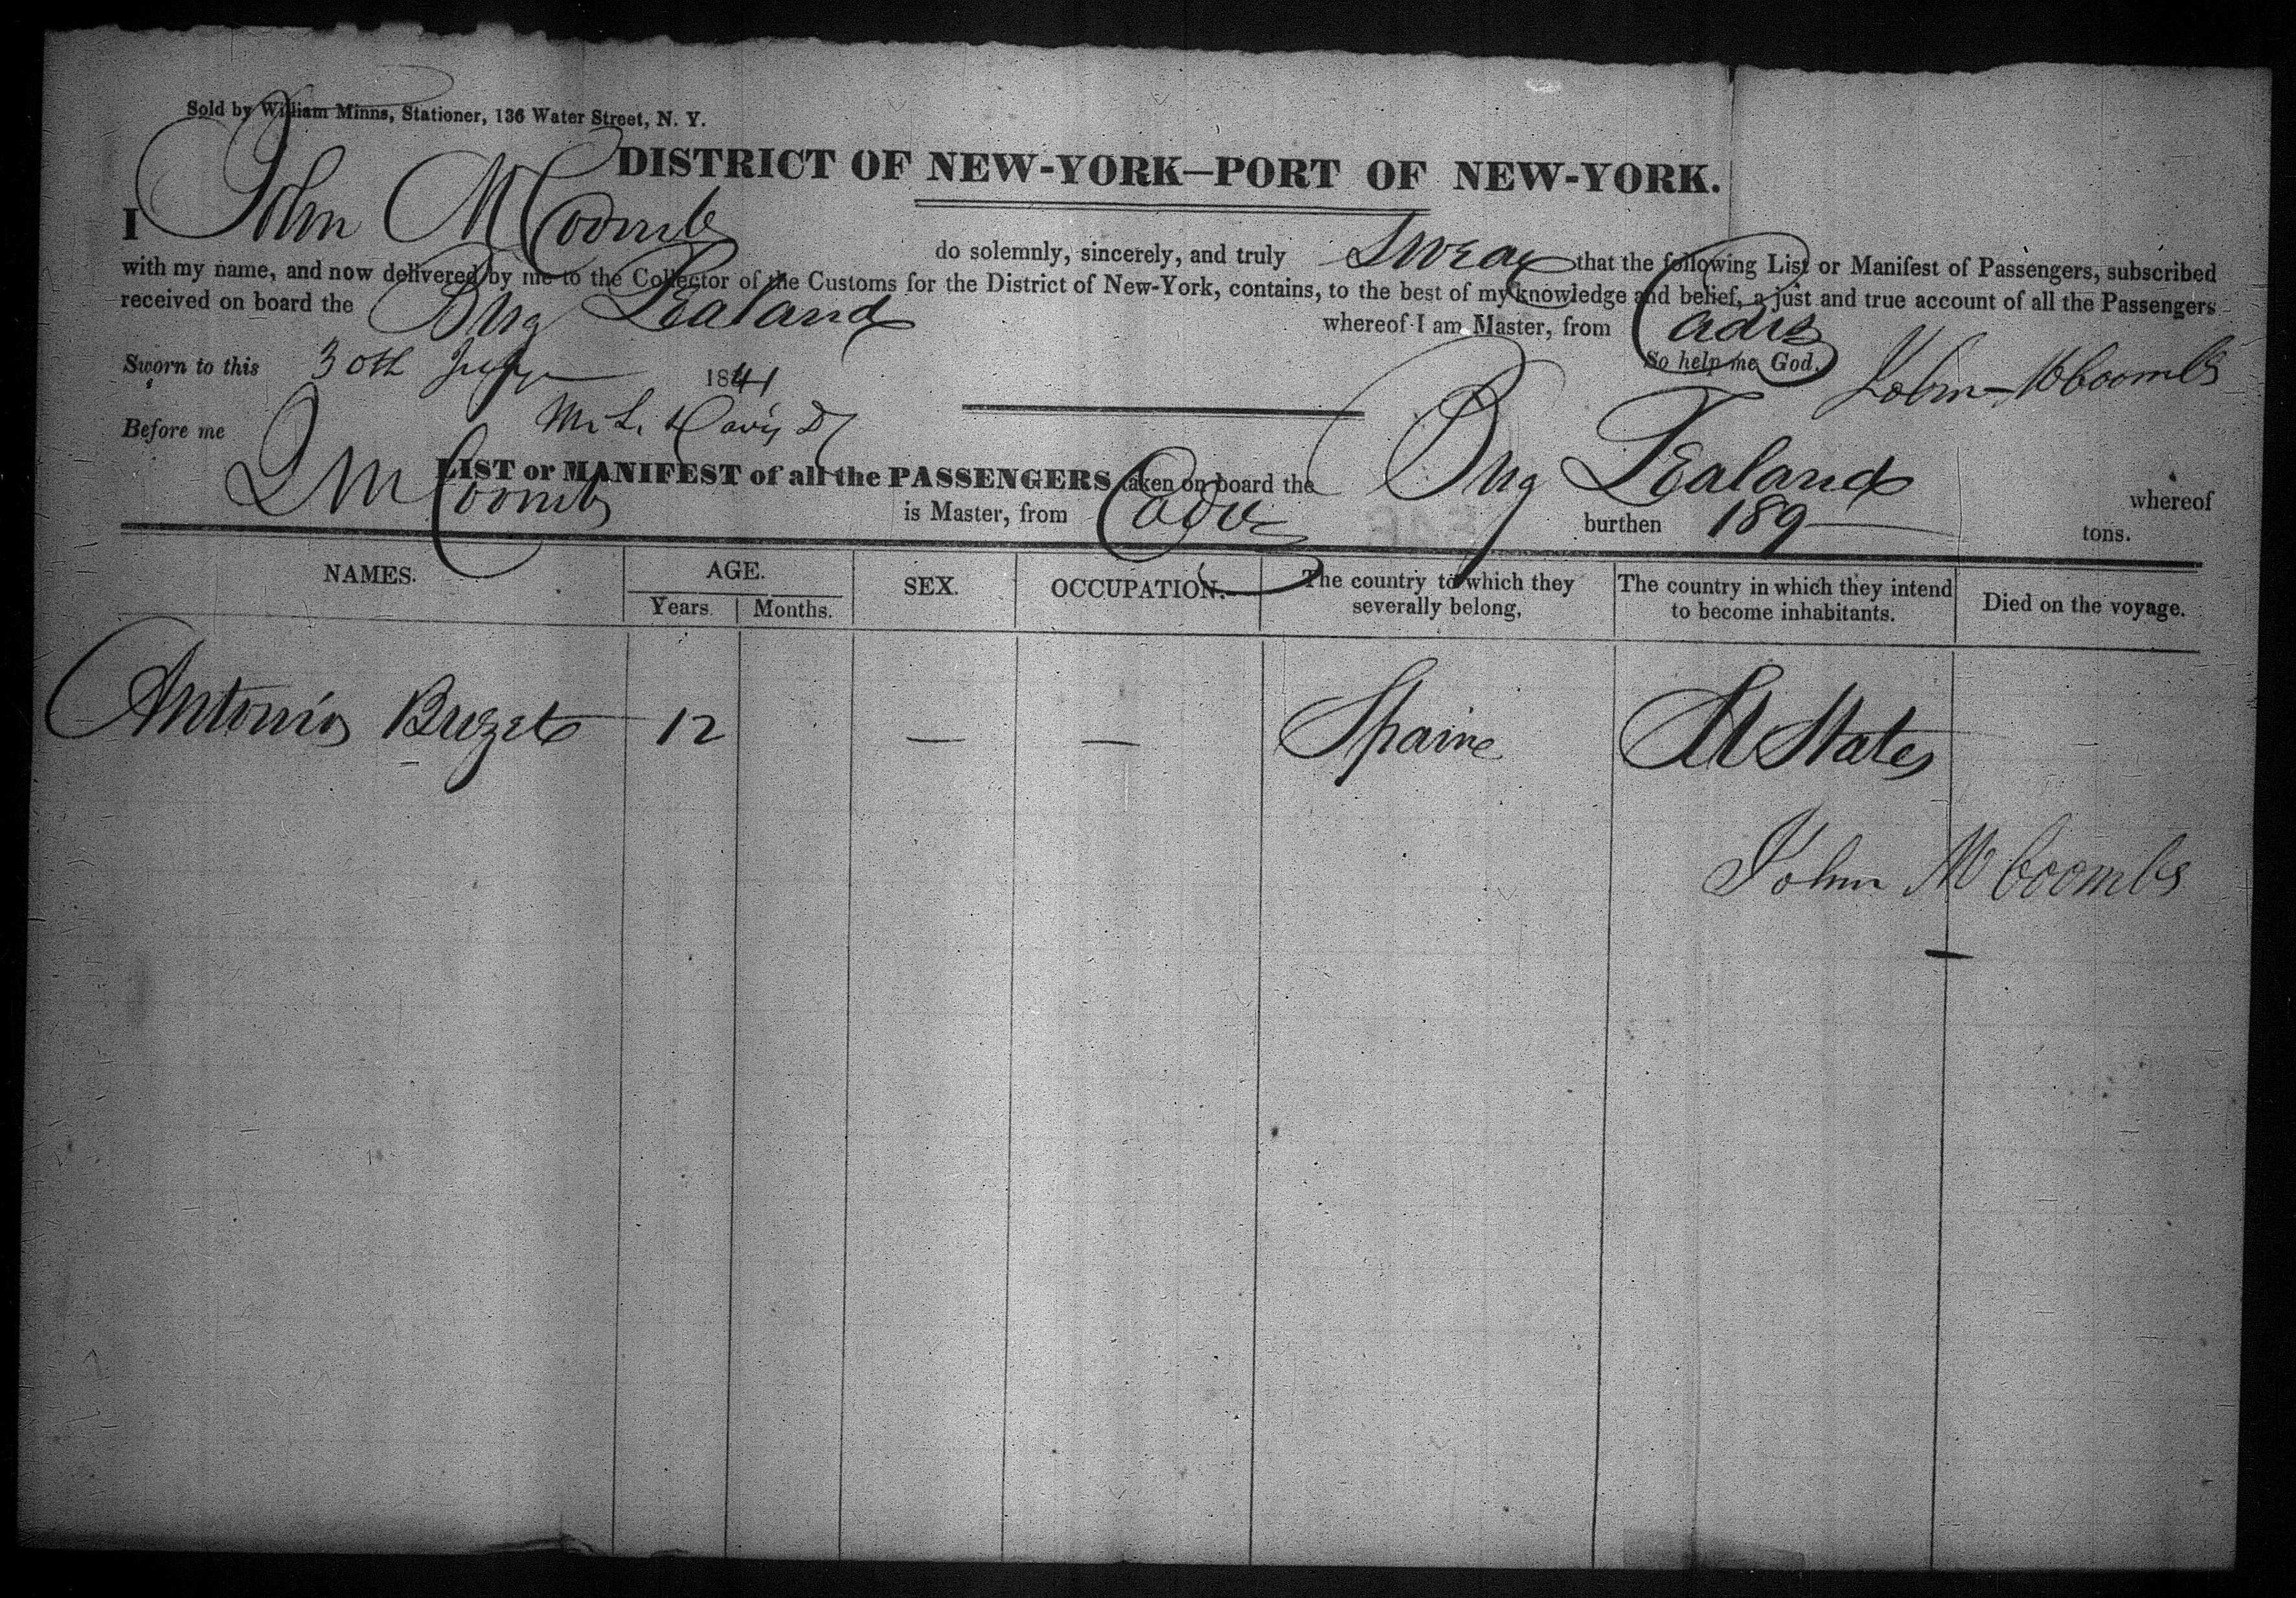 Sold by William Minns, Stationer, 136 Water Street, N. Y.
DISTRICT OF NEW-YORK—PORT OF NEW-YORK.
I John M Coombs do solemnly, sincerely, and truly Swear that the following List or Manifest of Passengers, subscribed
with my name, and now delivered by me to the Collector of the Customs for the District of New-York, contains, to the best of my knowledge and belief, a just and true account of all the Passengers
received on board the Brig Zealand whereof I am Master, from Cadiz
So help me God. John M Coombs
Sworn to this 30th July 1841
Before me M. L. Davis
LIST or MANIFEST of all the PASSENGERS taken on board the Brig Zealand whereof
J M Coombs is Master, from Cadiz burthen 189 tons.
NAMES. AGE. SEX. OCCUPATION. The country to which they severally belong. The country in which they intend to become inhabitants. Died on the voyage.
Years. Months.
Antonio 12 — — Spaine States
John M Coombs